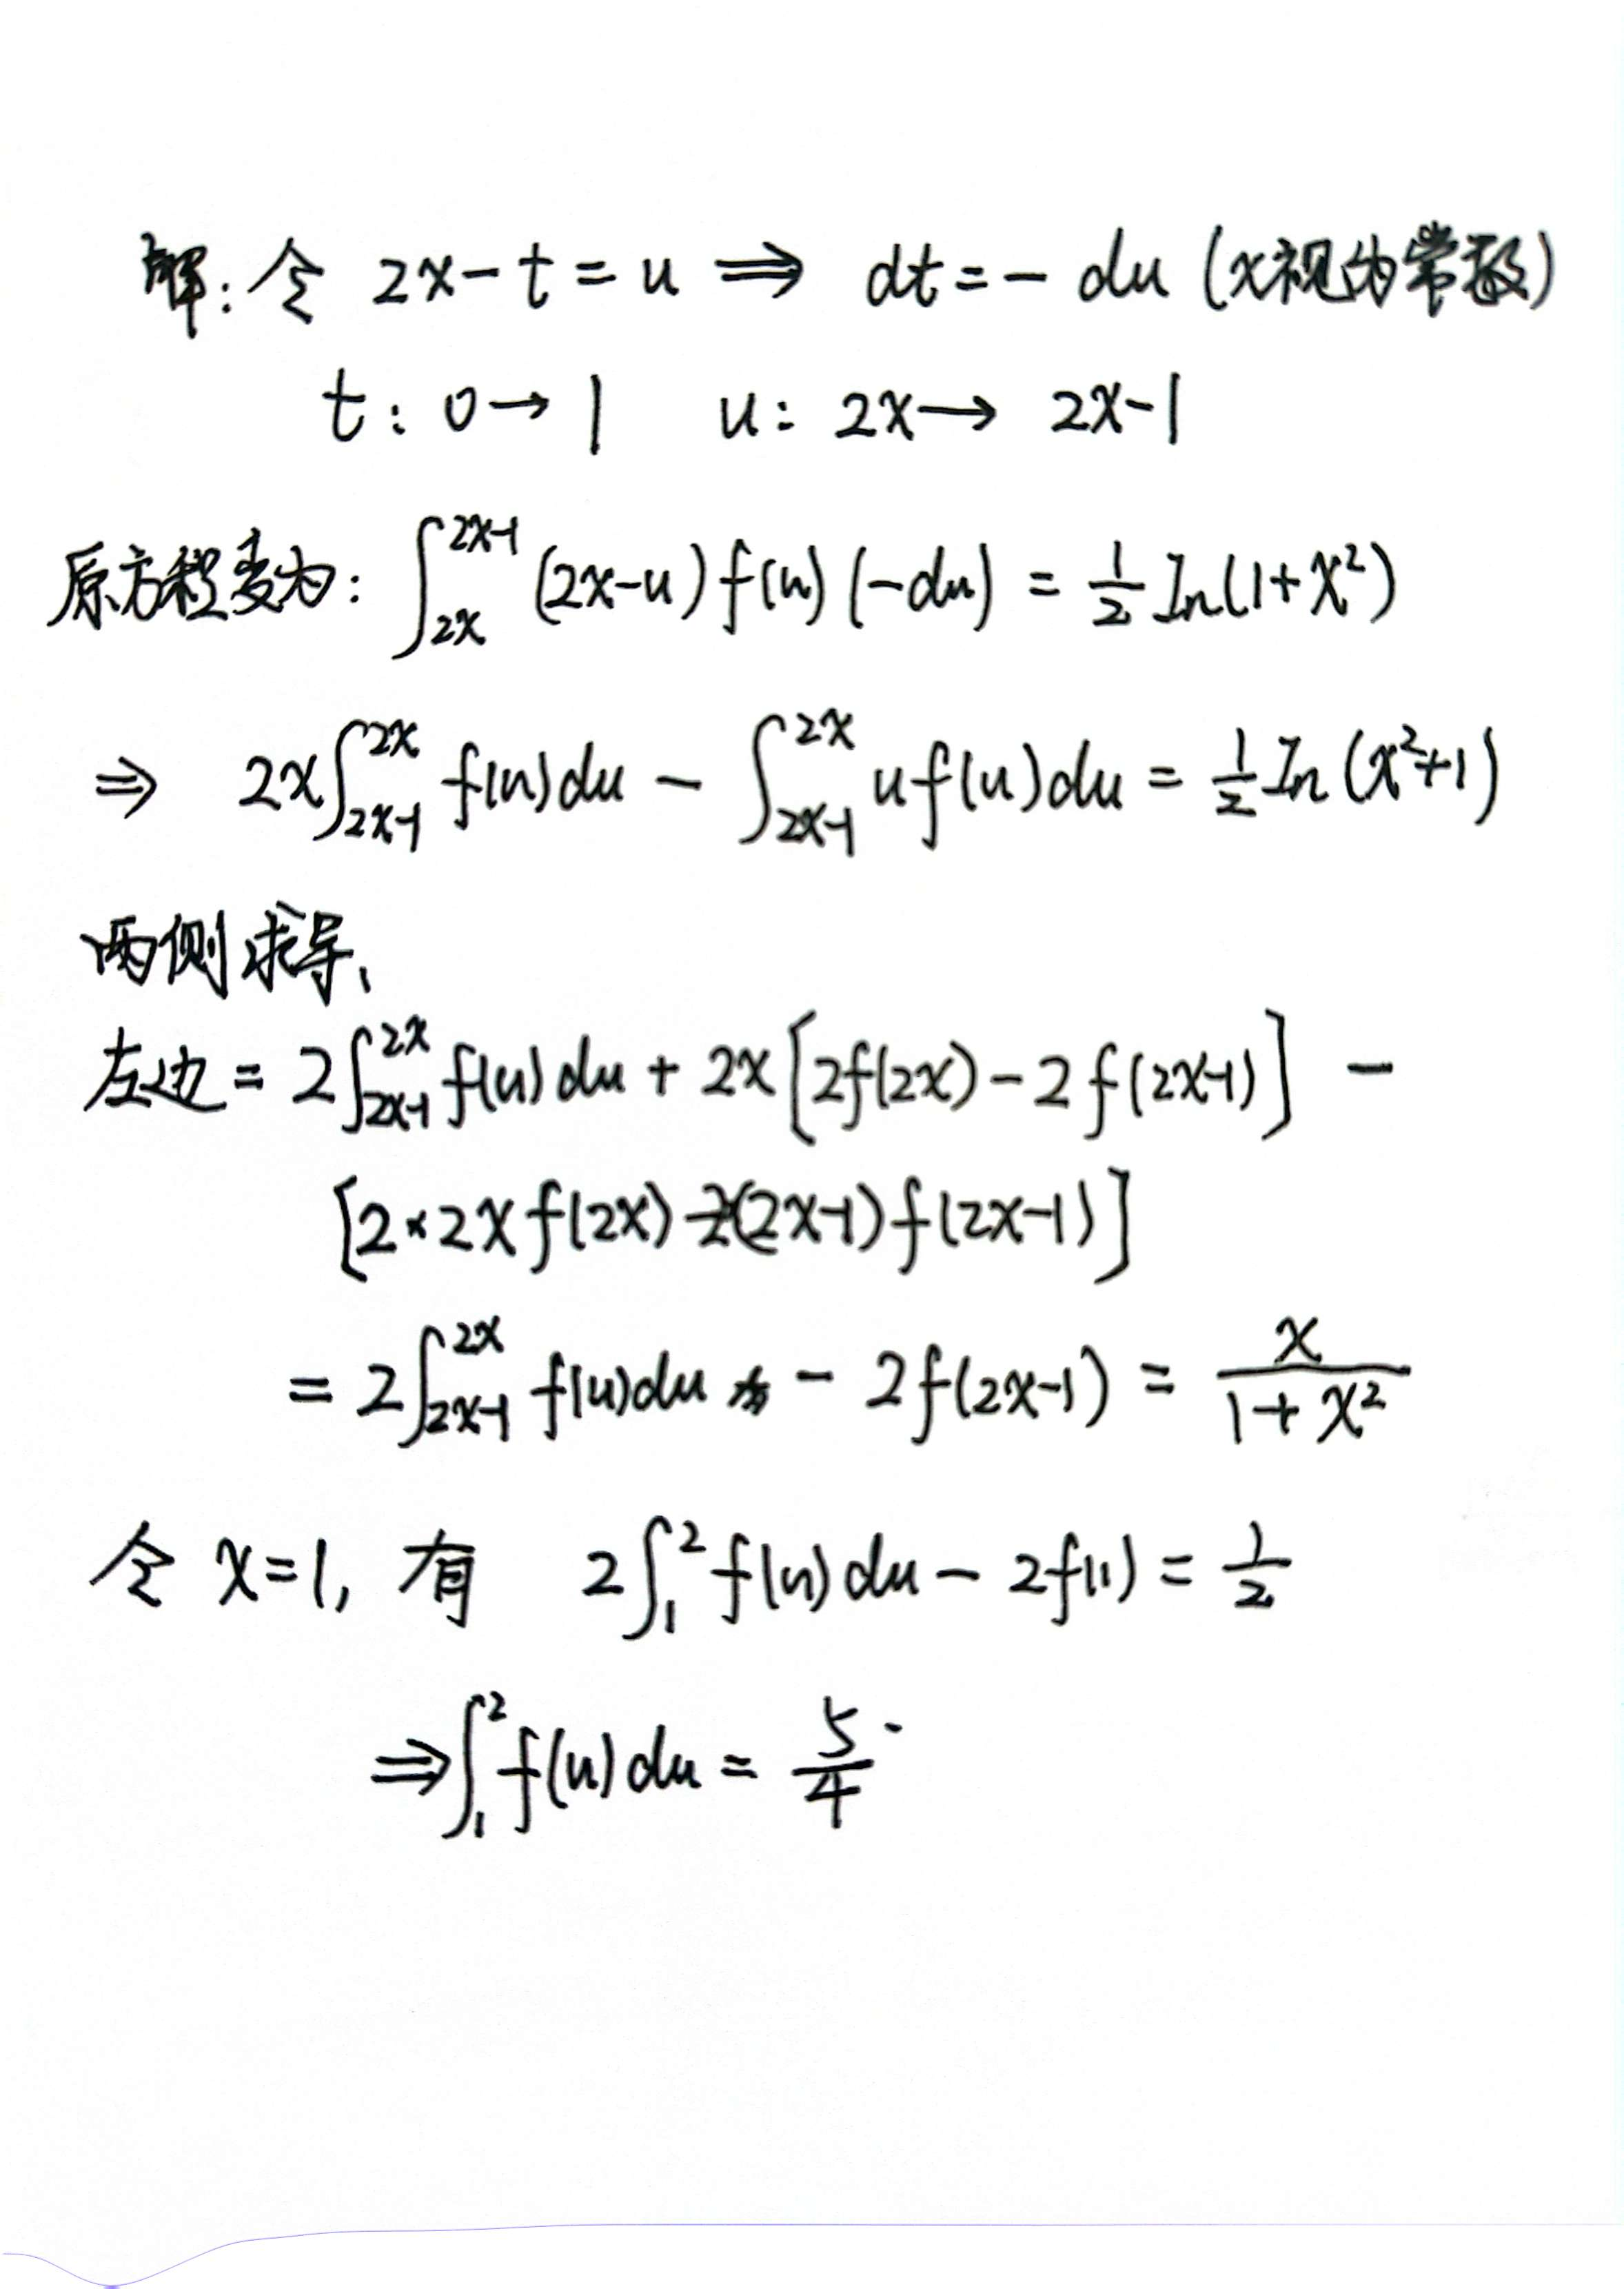 解：令 2x-t=u ⟹ dt=-du (x视为常数)
t：0→1　u：2x→2x-1
原方程变为：∫_{2x}^{2x-1} (2x-u)f(u)(-du) = 1/2 In(1+x²)
⇒ 2x∫_{2x-1}^{2x} f(u)du - ∫_{2x-1}^{2x} uf(u)du = 1/2 In(x²+1)
两侧求导、
左边 = 2∫_{2x-1}^{2x} f(u)du + 2x[2f(2x)-2f(2x-1)] -
[2×2xf(2x)-2(2x-1)f(2x-1)]
= 2∫_{2x-1}^{2x} f(u)du - 2f(2x-1) = x/(1+x²)
令 x=1, 有 2∫_1^2 f(u)du - 2f(1) = 1/2
⇒∫_1^2 f(u)du = 5/4.